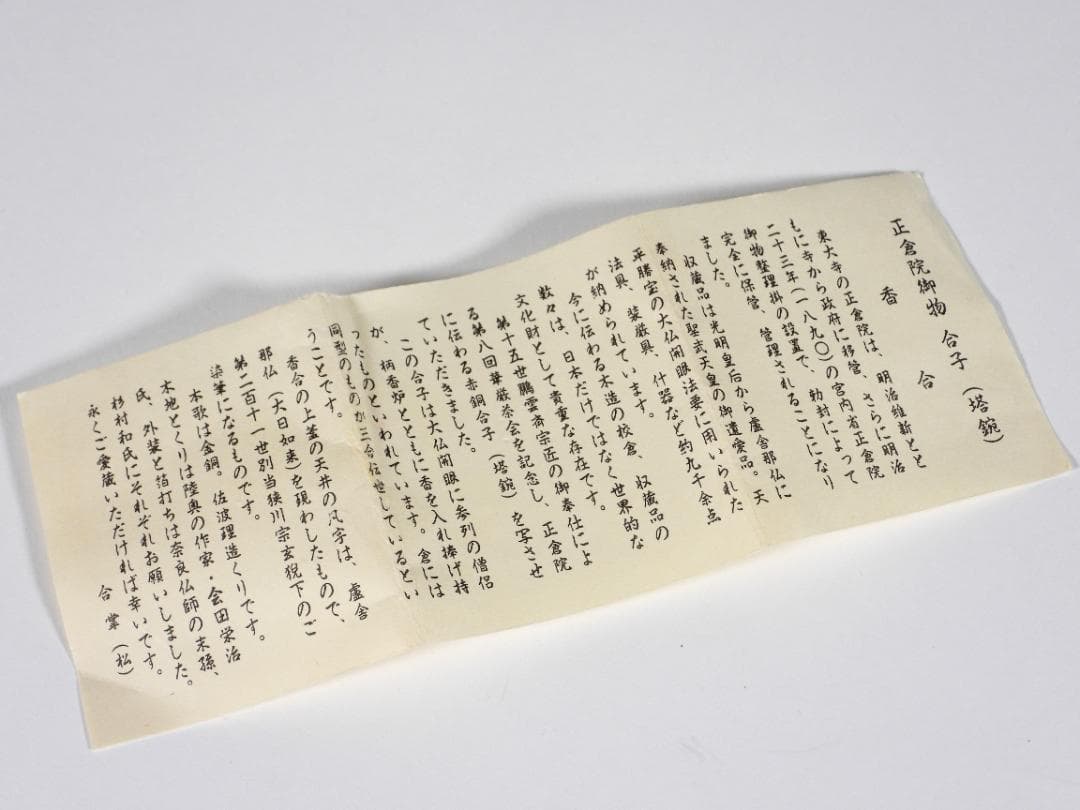 正倉院御物 合子（塔鋺）
香合
東大寺の正倉院は、明治維新とと
もに寺から政府に移管、さらに明治
二十三年（一八九〇）の宮内省正倉院
御物整理掛の設置で、勅封によって
完全に保管、管理されることになり
ました。
収蔵品は光明皇后から盧舎那仏に
奉納された聖武天皇の御遺愛品。天
平勝宝の大仏開眼法要に用いられた
法具、装厳具、什器など約九千余点
が納められています。
今に伝わる木造の校倉、収蔵品の
数々は、日本だけではなく世界的な
文化財として貴重な存在です。
第十五世鵬雲斎宗匠の御奉仕によ
る第八回華厳茶会を記念し、正倉院
に伝わる赤銅合子（塔鋺）を写させ
ていただきました。
この合子は大仏開眼に参列の僧侶
が、柄香炉とともに香を入れ捧げ持
ったものといわれています。倉には
同型のものが三合伝世しているとい
うことです。
香合の上蓋の天井の梵字は、盧舎
那仏（大日如来）を現わしたもので、
第二百十一世別当狭川宗玄猊下のご
染筆になるものです。
本歌は金銅。佐波理造くりです。
木地とくりは陸奥の作家・会田栄治
氏、外装と箔打ちは奈良仏師の末孫、
杉村和氏にそれぞれお願いしました。
永くご愛蔵いただければ幸いです。
合掌（松）